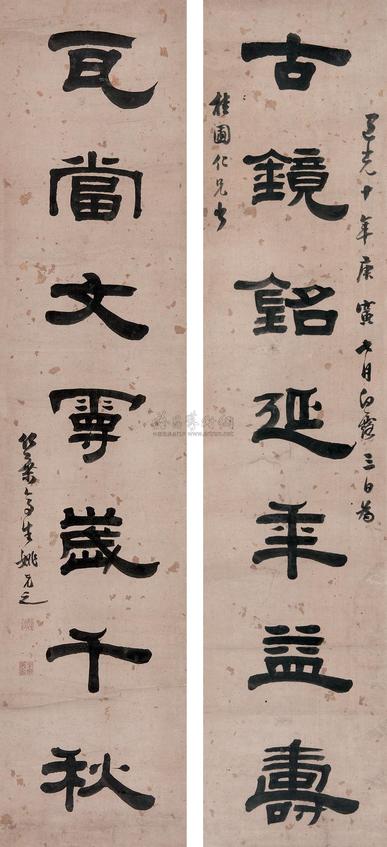 道光十年庚寅七月白露三日為
古鏡銘延年益壽
桂圃仁兄書
瓦當文寧歲千秋
竹葉亭生姚元之